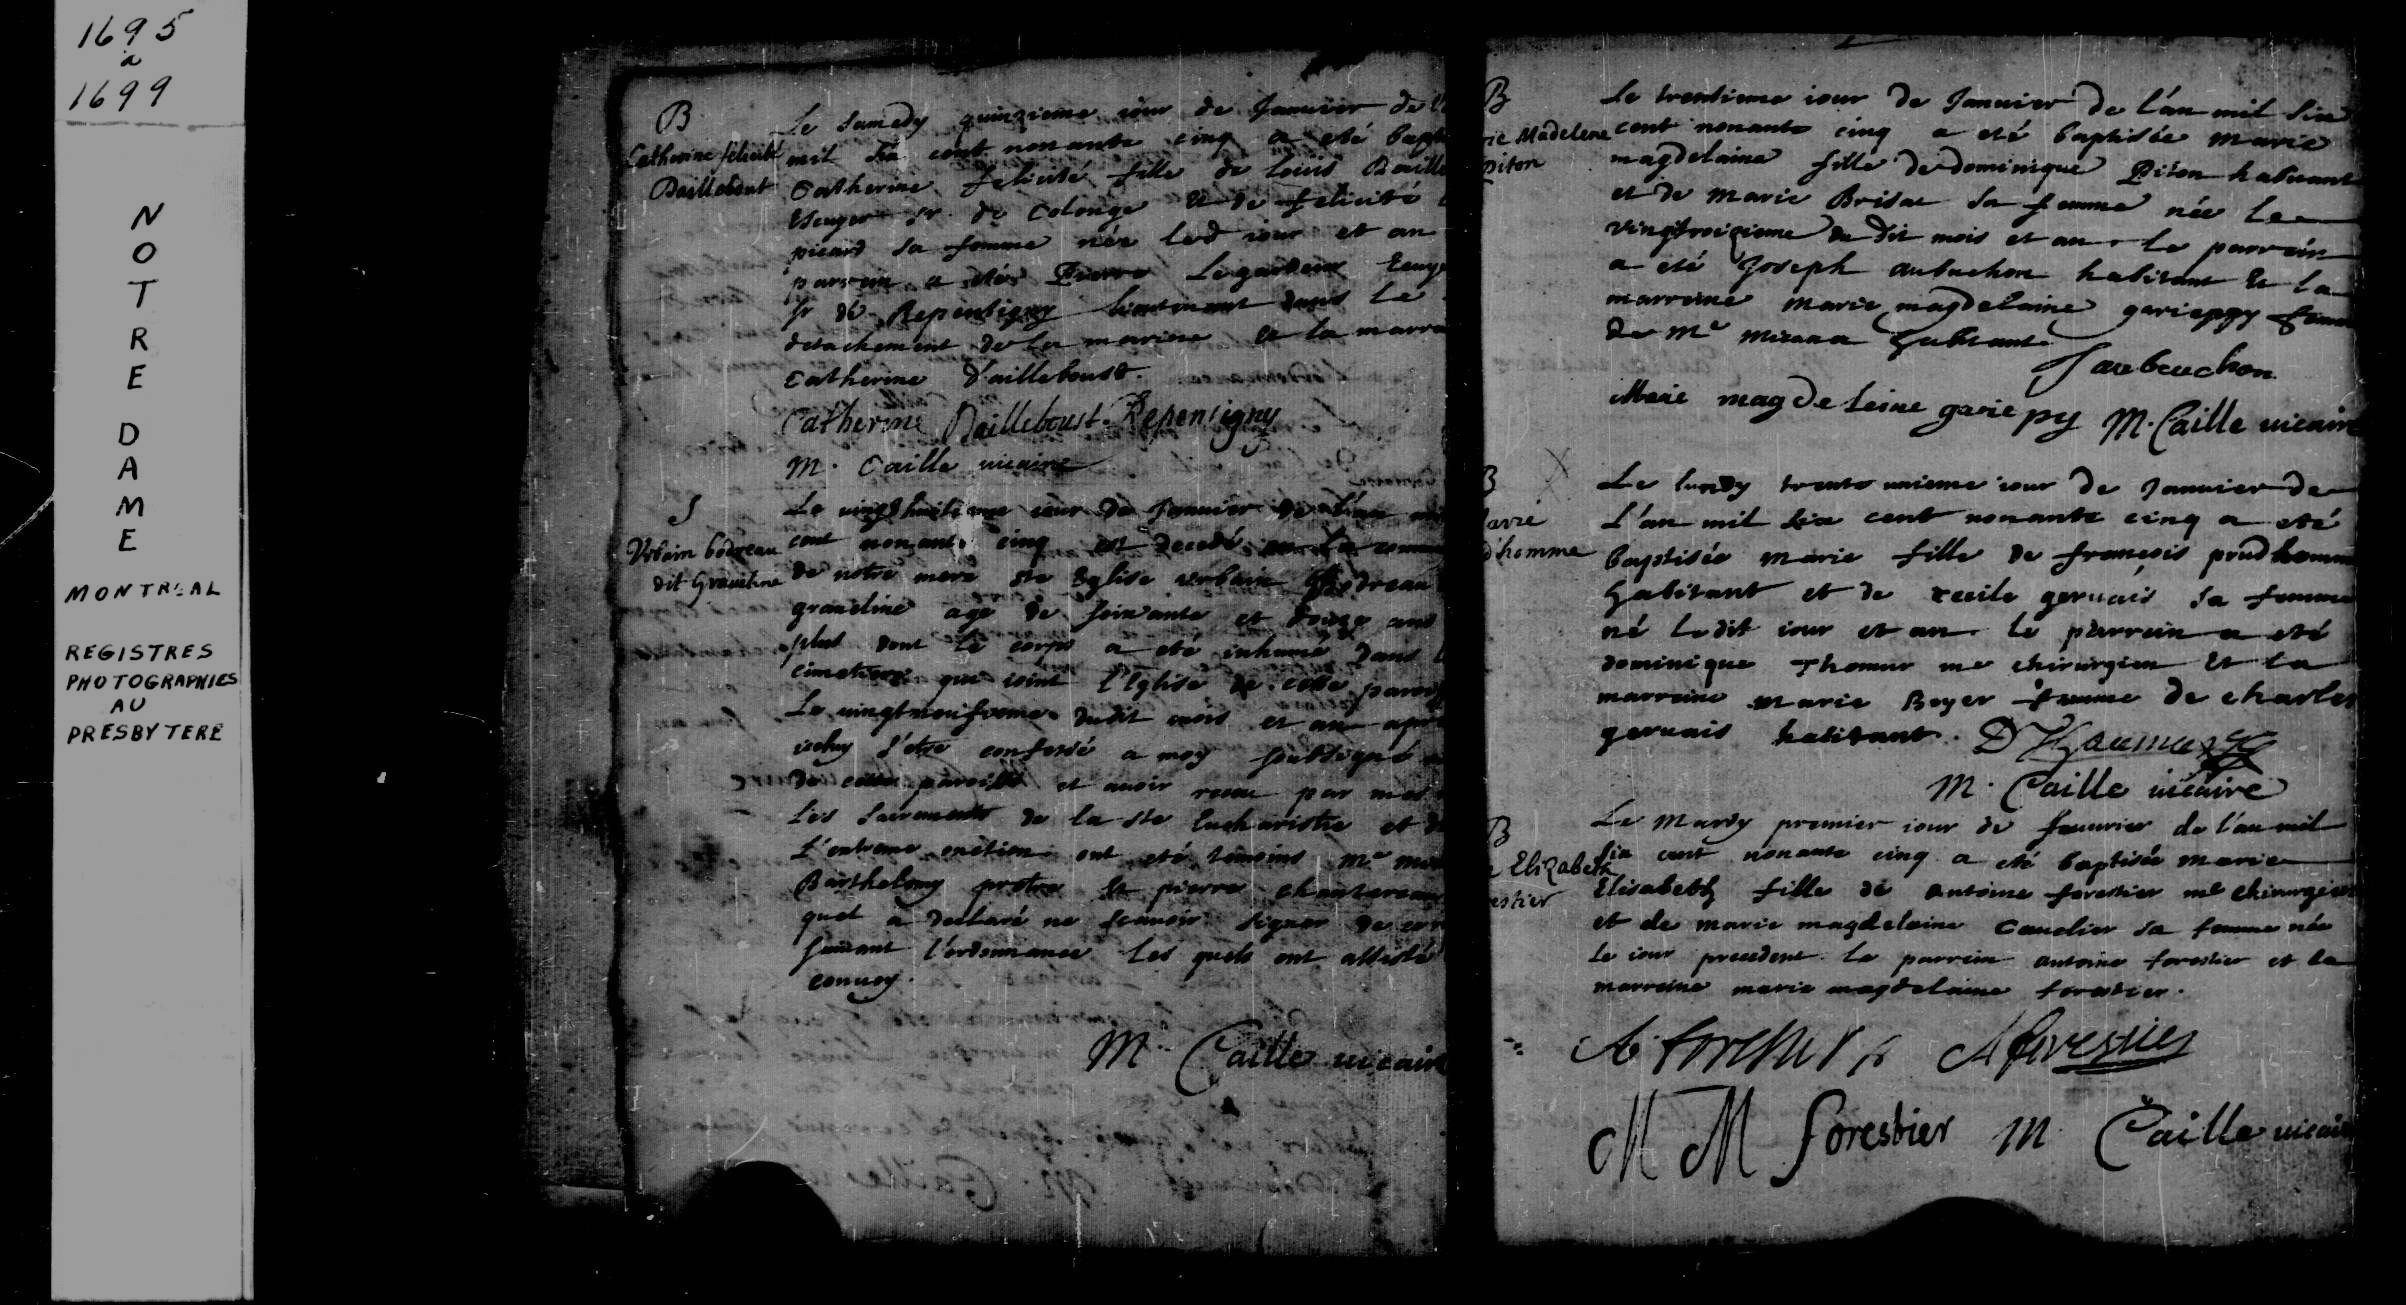 1695
a
1699
NOTRE DAME
MONTRÉAL
REGISTRES
PHOTOGRAPHIES
AU
PRESBYTERE
B
Catherine felicité
Daillebout
Le Samedy quinzieme iour de Januier de l'
mil six cent nonante cinq a eté bapti
Catherine felicité fille de Louis Daille
Escuyer Sr. de Colonge Et de felicité
picard sa femme née led iour et an
parrein a eté Pierre Legardeur Ecuye
Sr de Repentigny lieutenant dans le
detachement de la marine et la marre
Catherine D'ailleboust.
Catherine Dailleboust. Repentigny
M. Caille uicaire
S
Vrbain bodreau
dit Graueline
Le uingthuitieme iour de Januier de l'an mi
cent nonante cinq est decedé en la comm
de notre mere Ste Eglise urbain bodreau
graueline agé de soixante et douze ans
plus dont le corps a eté inhumé dans l
cimetiere qui ioint l'Eglise de cette paroi
Le uingtneufieme dudit mois et an apr
s'etre confessé a moy soubsigné
de cette paroisse et auoir receu par
les sacrements de la Ste Eucharistie et d
l'extreme onction ont eté temoins Mre
Barthelemy pretre Et pierre chantereau
quel a declaré ne scauoir signer de
suiuant l'ordonnance les quels ont assisté
conuoy.
M. Caille uicaire
B
rie Madelene
Piton
Le trentieme iour de Januier de l'an mil six
cent nonante cinq a eté baptisée marie
magdelaine fille de dominique Piton habitant
et de marie Brisac sa femme née le
vingttroizieme du dit mois et an. le parrein
a eté Joseph aubuchon habitant Et la
marreine marie magdelaine gariepy femme
de Mre habitant
J aubeuchon
Marie magdeleine gariepy M. Caille uicaire
B
Marie
d'homme
Le lundy trente unieme iour de Januier de
L'an mil six cent nonante cinq a eté
baptisée marie fille de françois prudhomme
habitant et de cecile geruais sa femme
né ledit iour et an. le parrein a eté
dominique Thomur me chirurgien Et la
marreine marie Boyer femme de charles
geruais habitant. D Thaumur
M. Caille uicaire
B
Elizabeth
estier
Le Mardy premier iour de feurier de l'an mil
six cent nonante cinq a eté baptisée marie
Elisabeth fille de antoine forestier me chirurgien
et de marie magdelaine Cauelier sa femme née
le iour precedent. le parrein antoine forestier et la
marreine marie magdelaine forestier.
A. forestier A forestier
M M forestier M Caille uicaire